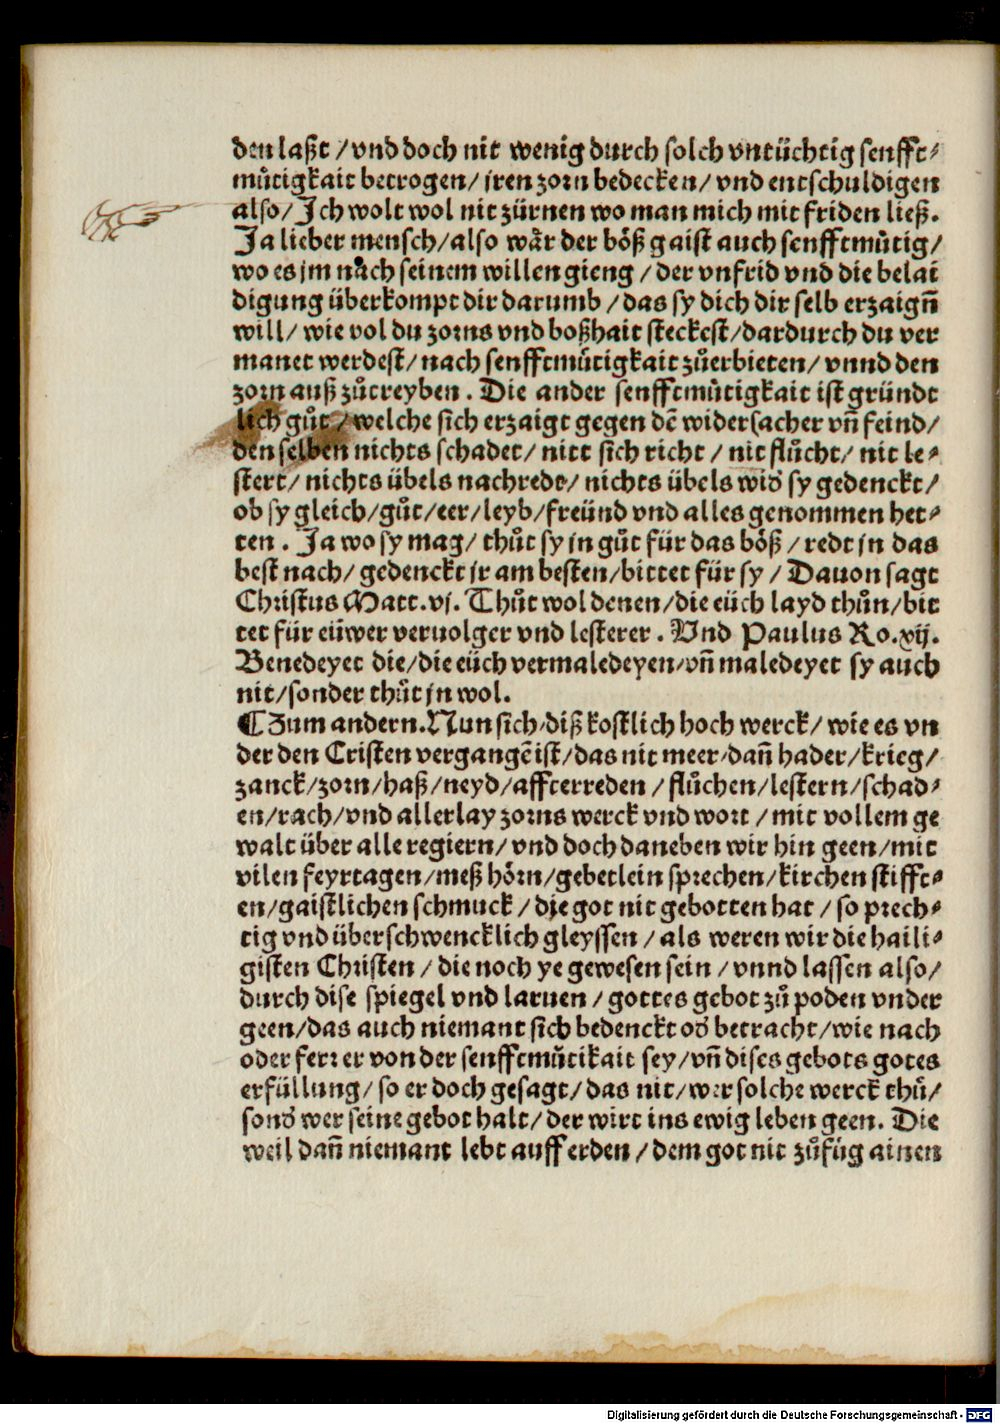 den laßt / vnd doch nit wenig durch solch vntüchtig senfft⸗
mu̇tigkait betrogen / jren zorn bedecken / vnd entschuldigen
also / Ich wolt wol nit zürnen wo man mich mit friden ließ.
Ja lieber mensch / also wår der böß gaist auch senfftmu̇tig /
wo es jm nach seinem willen gieng / der vnfrid vnd die belai
digung überkompt dir darumb / das sy dich dir selb erzaigñ
will / wie vol du zorns vnd boßhait steckest / dardurch du ver
manet werdest / nach senfftmu̇tigkait zůerbieten / vnnd den
zorn auß zůtreyben . Die ander senfftmu̇tigkait ist gründt
lich gůt / welche sich erzaigt gegen dē widersacher vñ feind /
den selben nichts schadet / nitt sich richt / nit flůcht / nit le⸗
stert / nichts übels nachredt / nichts übels wid̕ sy gedenckt /
ob sy gleich / gůt / eer / leyb / freünd vnd alles genommen het⸗
ten . Ja wo sy mag / thůt sy jn gůt für das böß / redt jn das
best nach / gedenckt jr am besten / bittet für sy / Dauon sagt
Christus Matt. vj. Thůt wol denen / die eüch layd thůn / bit
tet für eüwer veruolger vnd lesterer . Vnd Paulus Ro. xij.
Benedeyet die / die eüch vermaledeyen / vñ maledeyet sy auch
nit / sonder thůt jn wol.
¶ Zum andern. Nun sich / diß kostlich hoch werck / wie es vn
der den Cristen vergangē ist / das nit meer / dañ hader / krieg /
zanck / zorn / haß / neyd / affterreden / flůchen / lestern / schad⸗
en / rach / vnd allerlay zorns werck vnd wort / mit vollem ge
walt über alle regiern / vnd doch daneben wir hin geen / mit
vilen feyrtagen / meß hörn / gebetlein sprechen / kirchen stifft⸗
en / gaistlichen schmuck / die got nit gebotten hat / so prech⸗
tig vnd überschwencklich gleyssen / als weren wir die haili⸗
gisten Christen / die noch ye gewesen sein / vnnd lassen also /
durch dise spiegel vnd laruen / gottes gebot zů poden vnder
geen / das auch niemant sich bedenckt od̕ betracht / wie nach
oder ferr er von der senfftmu̇tikait sey / vñ dises gebots gotes
erfüllung / so er doch gesagt / das nit / wer solche werck thů /
sond̕ wer seine gebot halt / der wirt ins ewig leben geen. Die
weil dañ niemant lebt auff erden / dem got nit zůfüg ainen
Digitalisierung gefördert durch die Deutsche Forschungsgemeinschaft - DFG